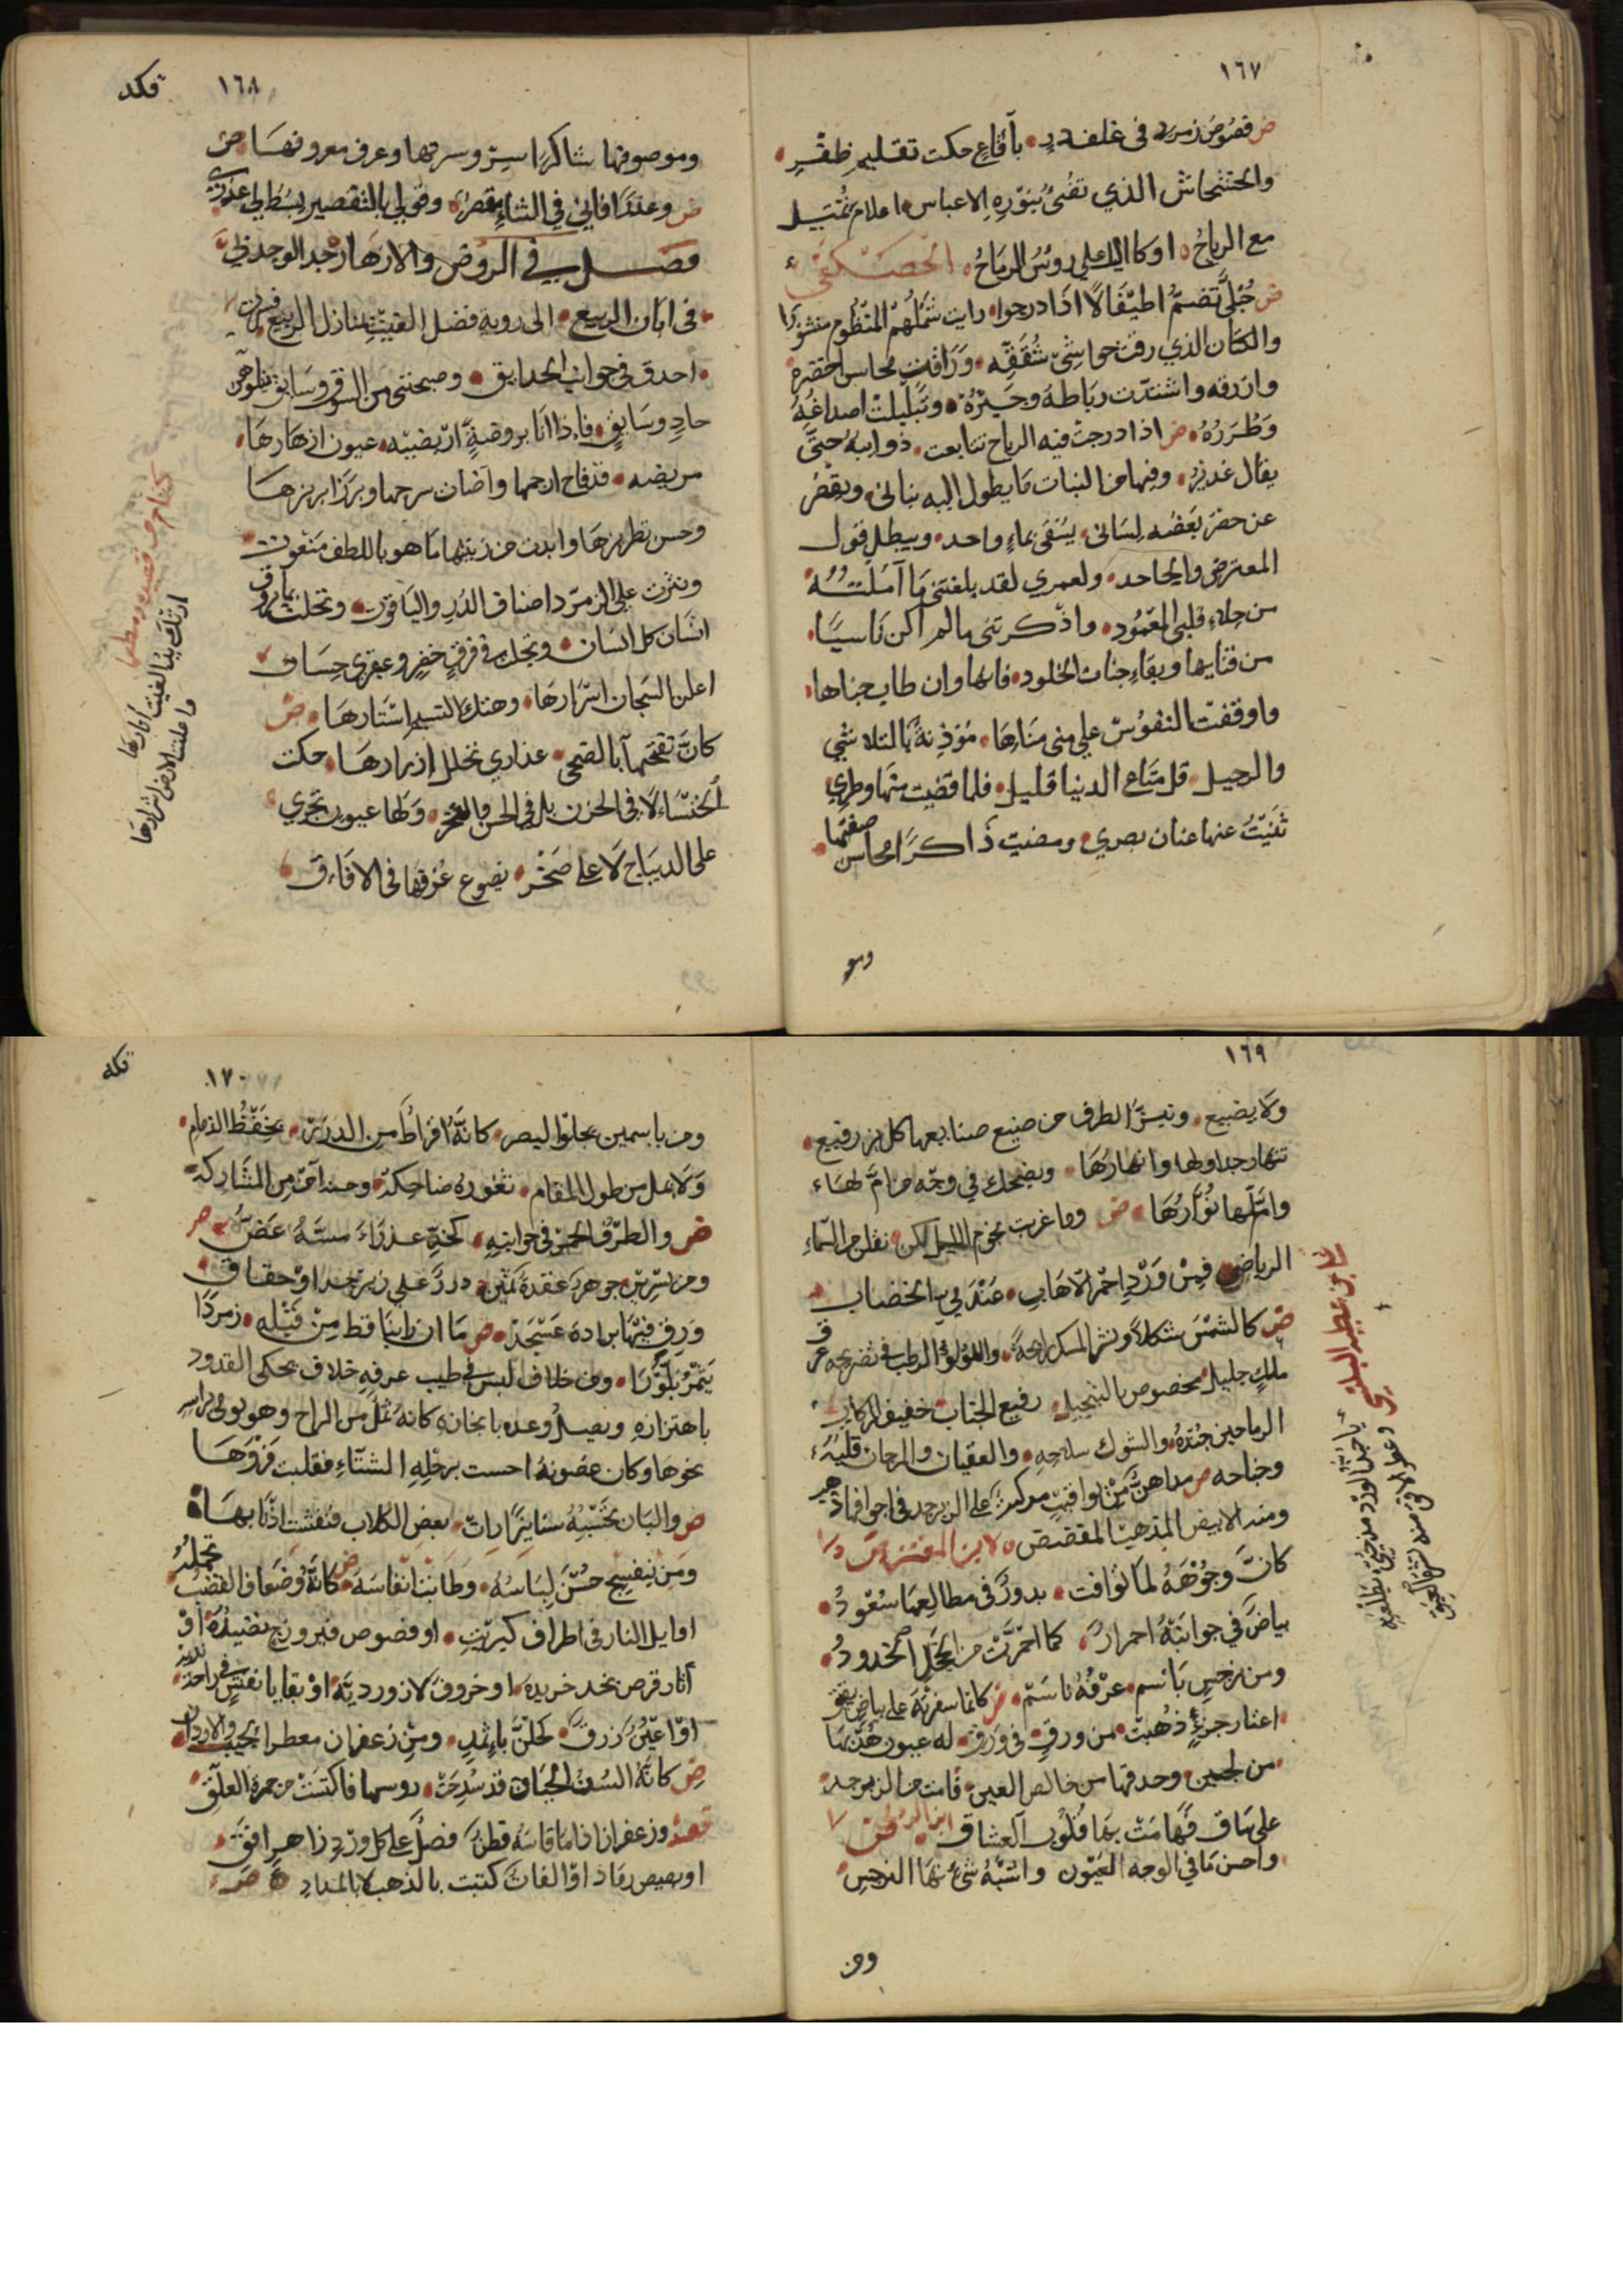 ١٦٧
ض فصوص زمرد في غلف در بأقماع حكت تقليم ظفر
والخشخاش الذي تضئ بنوره الاغباس اعلام تميل
مع الرياح او كاالياا على رؤس الرماح الحصكفي
ض حبلى تضم اطيفالا اذا درجوا رايت شملهم المنظوم منثورا
والكتان الذي رقت حواشي شققه وراقت محاسن اخضره
وازرقه واشتدت رباطه وحيزه وتبلبلت اصداغه
وطرره ض اذا درجت فيه الرياح تتابعت ذوايبه حتى
يقال غدير وفيها من النبات ما يطول اليه بناني ويقصر
عن حصر بعضه لساني يسقى بماء واحد ويبطل قول
المعترض والجاحد ولعمري لقد بلغتني ما آملته
من جلاء قلبي المعمود واذكرتني مالم اكن ناسيا
من فنايها وبقاء جنات الخلود فانها وان طاب جناها
واوقفت النفوس على منى مناها مؤذنة بالتلاشي
والرحيل قل متاع الدنيا قليل فلما قضيت منها وطري
ثنيت عنها عنان بصري ومضيت ذاكرا محاسن صفتها
ومو
١٦٨
قكد
وموصوفها شاكرا سيرو سرحها وعرف معروفها ض
ض وعندا فاني في الثناء مقصر وقولي بالتقصير يبسط لي عذري
فصل في الروض والازهار جد الوجد بي
في ابان الربيع الى روية فضل الغيث بمنازل الربيع فسرت
احدق في جوانب الحدايق وصحبتي من الشوق وسايق يتلوهن
حاد وسايق فاذا انا بروضة اريضيه عيون ازهارها
مريضه قد فاح ارجها وآضات سرجها وبرزا بريزها
وحسن تطريزها وابدت من زينتها ما هو باللطف منعوت
ونثرت على الزمرد اصناف الدر والياقوت وتحلت بما يروق
انسان كل انسان وتجلت في رفرف خضر وعبقري حسان
اعلن السجان اسرارها وهتك النسيم استارها ض
كان تفتحها بالضحى عذاري تحلل ازرارها حكت
الخنساء لا في الحزن بل في الحسن والفخر ولها عيون تجري
على الديباج لا على صخر يضوع عرفها في الافاق
كتام من قصيده ومطلعها
ارتك يد الغيث آثارها
واعلنت الارض اسرارها
١٦٩
ولا يضيع وتيسر الطرف من صنيع صنايعها كل بز رفيع
تنهار جداولها وانهارها ويضحك في وجه من امَّ لها
وامّلها نُوّارها ض وما غربت نجوم الليل لكن نقلن من السماء
الرياض فمن ورد احمر الاهاب عندمي الخضاب
ض كالشمس شكلا ونشر المسك رايحة واللؤلؤ الرطب في تضريحه عرق
ملك جليل مخصوص بالتبجيل رفيع الجناب خفيف الركاب
الرياحين جنده والشوك سلاحه والعقيان والمرجان قلبه
وجناحه ض مداهن من يواقيت مركبة على الزبرجد في اجوافها ذهب
ومنه الابيض المذهب المفضض لابن المعتز
كان وجوهه لما توافت بدور في مطالعها سعود
بياض في جوانبه احمرار كما احمرت من الخجل الخدود
ومن نرجس باسم عرفه ناسم ض كانما سفرته على بياض يقق
اعشار جزء ذهبت من ورق في ورق له عيون هدبها
من لجين وحدقها من خالص العين قامت من الزبرجد
على ساق فهامت بها قلوب العشاق ابن الرومي
واحسن ما في الوجه العيون واشبه شئ بها النرجس
ومن
لابن عطيه البلنسي
يا حبذا الورد من جنى بطلعته
وعطر الافق منه نشره العبق
١٧٠
قكه
ومن ياسمين يجلوا البصر كانه اقراط من الدرر يحفظ الذمام
ولا يمل من طول المقام ثغوره ضاحكة وحسنه آمن من المشاركة
ض والطرق الحمر في جوانبه كخد عذراء مسه عض
ومن نسرين جوهره عقده ثمين درر على زبرجد او حقاق
ورق فيها براده عسجد ض ما ان راينا قط من قبله زمردا
يثمر بلورا ومن خلاف ليس في طيب عرفه خلاف يحكى القدود
باهتزازه ويصل وعده بانجازه كانه ثمل من الراح وهو يومى براسه
نحوها وكان غصونه احست برحلة الشتاء فقلبت فروها
ض والبان تحسبه سنانيرا رات بعض الكلاب فنفشت اذنابها
ومن بنفسج حسن لباسه وطابت انفاسه ض كانه وضعاف القضب تحمله
اوايل النار في اطراف كبريت او فصوص فيروزج نضيده او
آثار قرص بخد خريده او خروف لازورديه او بقايا نقش في راحة
او اعين زرق كحلن باثمد ومن زعفران معطر الجيب والاردان
ض كانه السن الحيات قد شدخت روسها فاكتست من حمرة العلق
وزعفران اذا ما قاسه فطن فضل على كل ورد زاهر انق
او بصيص رماد او الفات كتبت بالذهب لا بالمداد ض